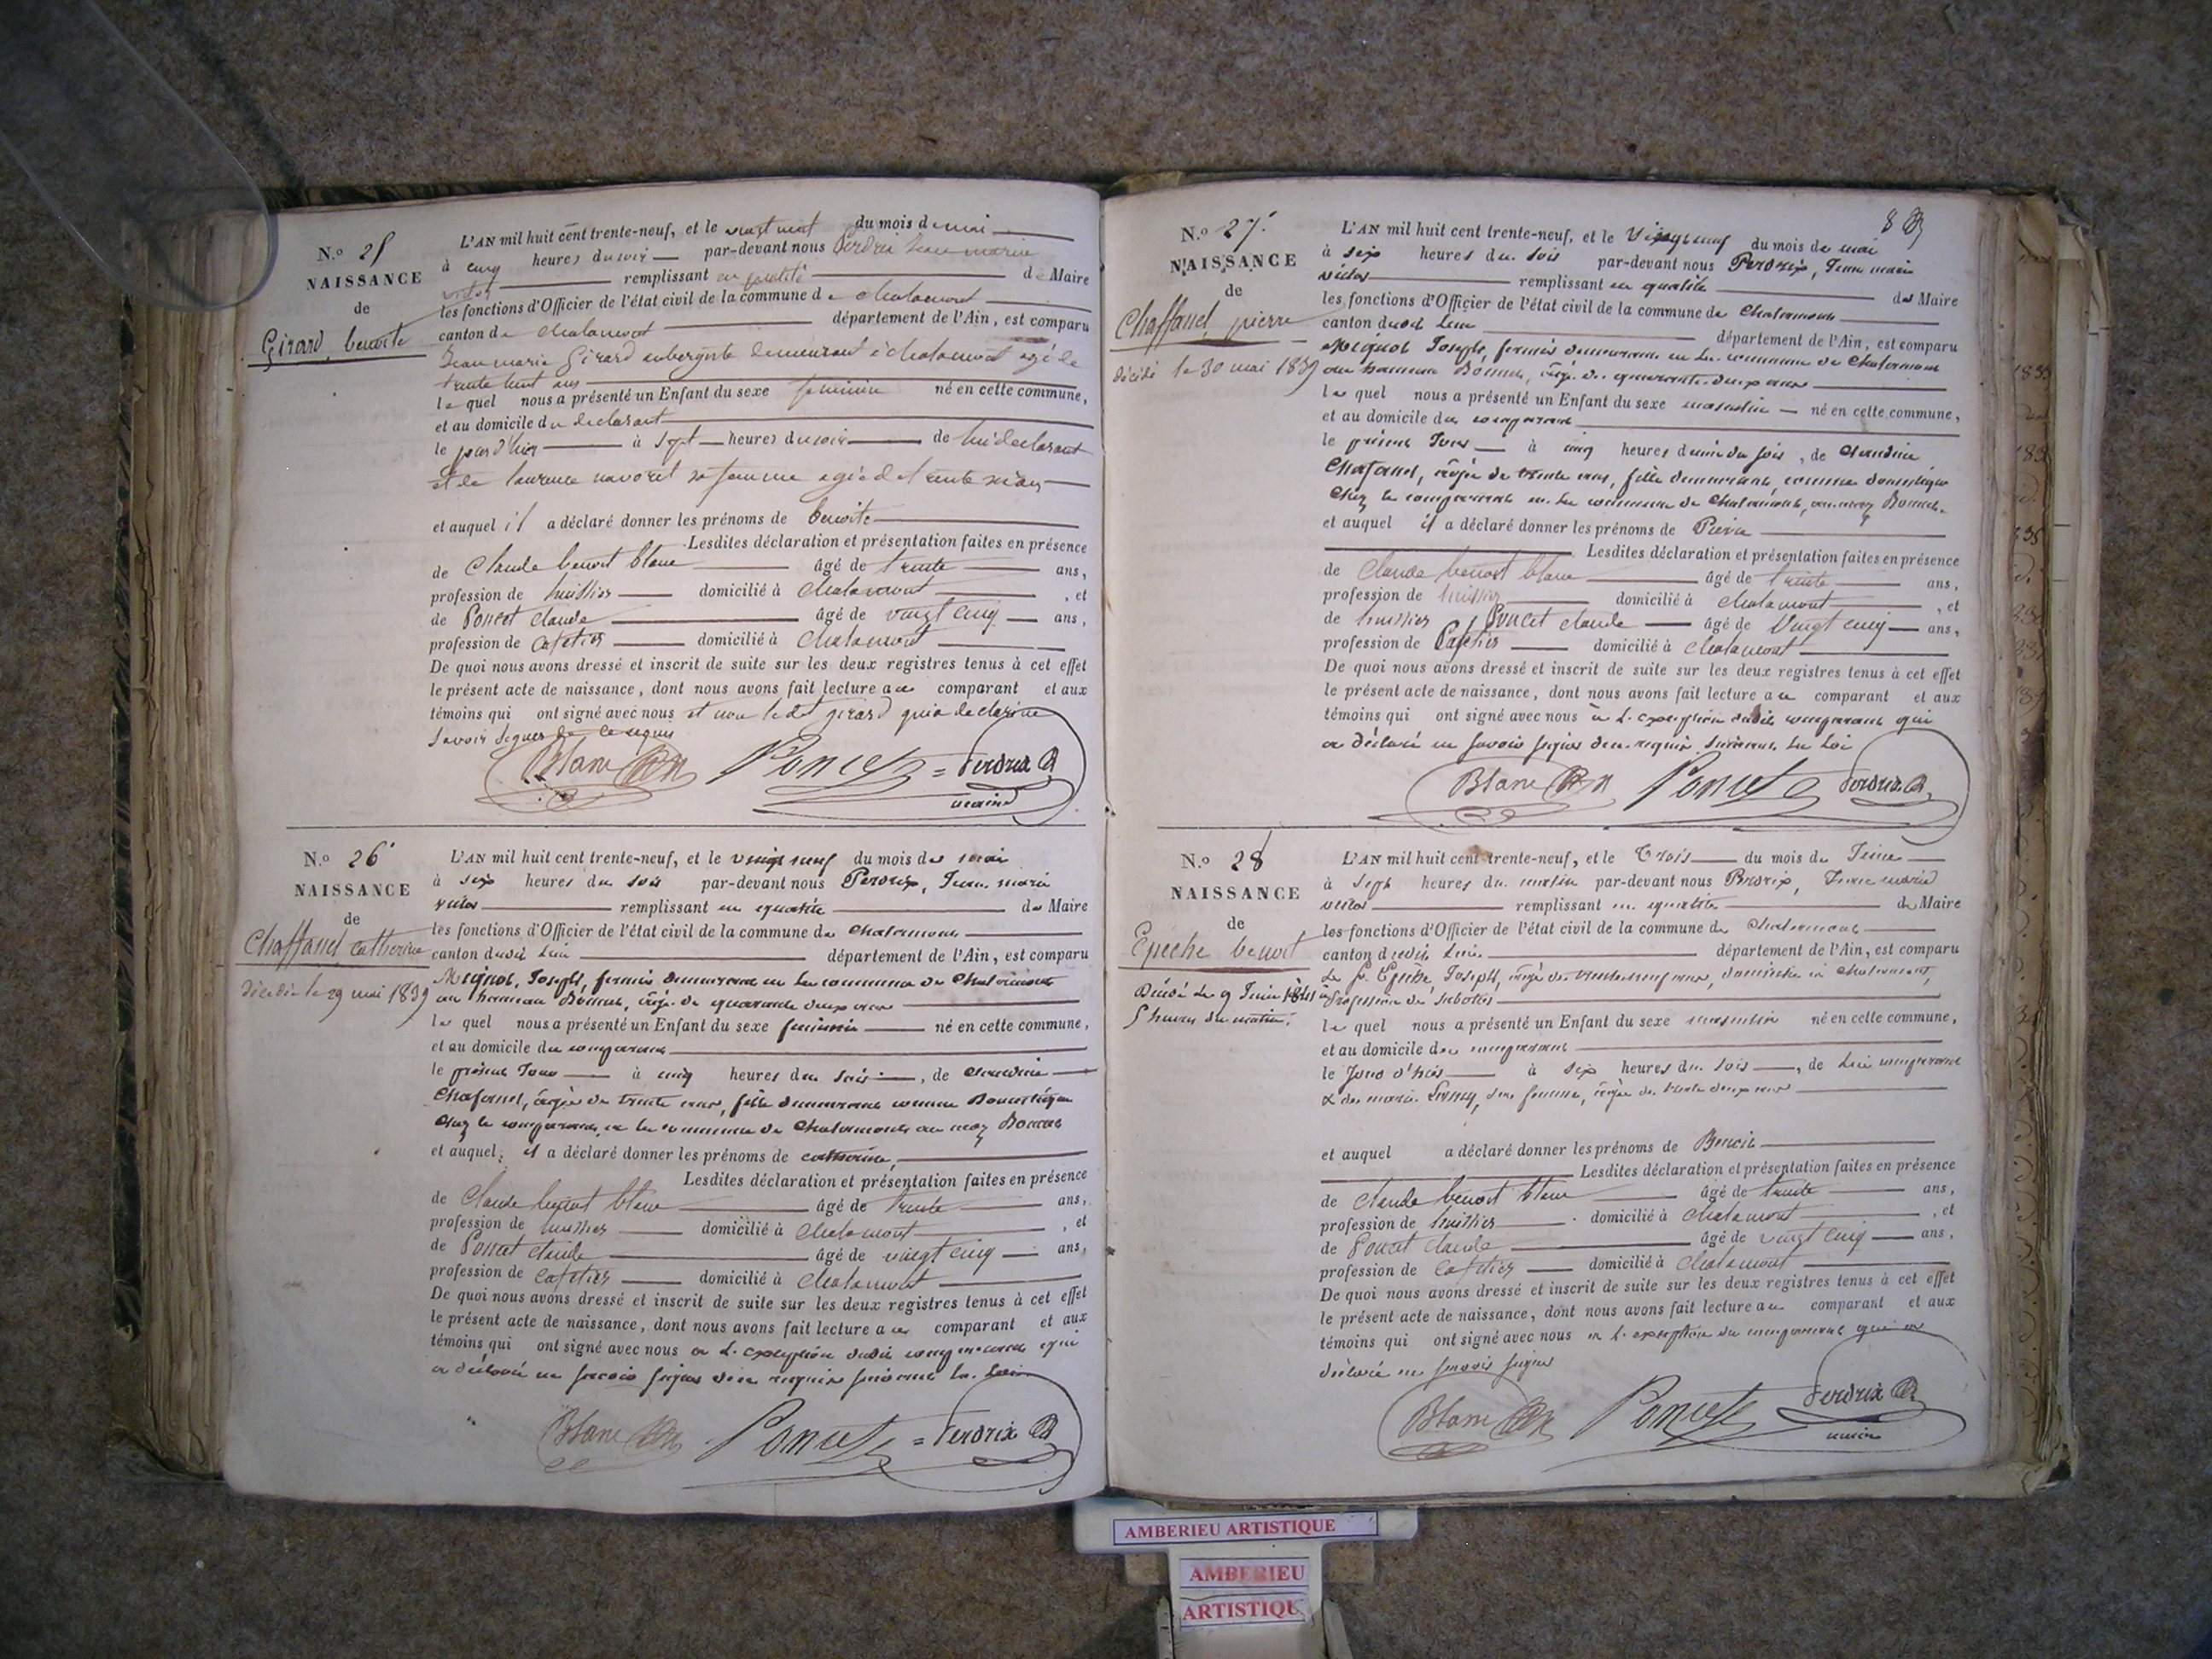 N.º 25
NAISSANCE
de
Girard benoite
L'AN mil huit cent trente-neuf, et le vingt neuf du mois de mai
à cinq heures du soir par-devant nous Perdrix Jean marie
victor remplissant en qualité de Maire
les fonctions d'Officier de l'état civil de la commune de chalamont
canton de chalamont département de l'Ain, est comparu
Jean marie Girard aubergiste demeurant à chalamont agé de
trente huit ans
le quel nous a présenté un Enfant du sexe féminin né en cette commune,
et au domicile du declarant
le jour d'hier à sept heures du soir de lui déclarant
et de laurence navoret sa femme agée de trente six ans
et auquel il a déclaré donner les prénoms de benoite
Lesdites déclaration et présentation faites en présence
de Claude benoit blanc âgé de trente ans,
profession de huissier domicilié à chalamont , et
de Poncet claude âgé de vingt cinq ans,
profession de cafetier domicilié à chalamont
De quoi nous avons dressé et inscrit de suite sur les deux registres tenus à cet effet
le présent acte de naissance, dont nous avons fait lecture au comparant et aux
témoins qui ont signé avec nous et non ledit girard qui a declaré ne
savoir signer de ce requis
Blanc Poncet Perdrix
maire
N.º 26
NAISSANCE
de
Chaffanel catherine
décédée le 29 mai 1839
L'AN mil huit cent trente-neuf, et le vingt neuf du mois de mai
à six heures du soir par-devant nous Perdrix, Jean marie
victor remplissant en qualité de Maire
les fonctions d'Officier de l'état civil de la commune de Chalamont
canton dudit lieu département de l'Ain, est comparu
Mignot, Joseph, fermier demeurant en la commune de Chalamont
au hameau Bonnet, âgé de quarante deux ans
le quel nous a présenté un Enfant du sexe feminin né en cette commune,
et au domicile du comparant
le présent Jour à cinq heures du soir, de claudine
Chafanel, âgée de trente ans, fille demeurant comme Domestique
chez le comparant en la commune de Chalamont au maz Bonnet
et auquel, il a déclaré donner les prénoms de catherine,
Lesdites déclaration et présentation faites en présence
de Claude benoit blanc âgé de trente ans,
profession de huissier domicilié à chalamont , et
de Poncet claude âgé de vingt cinq ans,
profession de cafetier domicilié à chalamont
De quoi nous avons dressé et inscrit de suite sur les deux registres tenus à cet effet
le présent acte de naissance, dont nous avons fait lecture au comparant et aux
témoins qui ont signé avec nous à l'exception dudit comparant qui
a déclaré ne savoir signer de ce requis suivant la Loi
Blanc Poncet Perdrix
N.º 27
NAISSANCE
de
Chaffanel pierre
décédé le 30 mai 1839
L'AN mil huit cent trente-neuf, et le Vingt neuf du mois de mai
à six heures du soir par-devant nous Perdrix, Jean marie
victor remplissant en qualité de Maire
les fonctions d'Officier de l'état civil de la commune de Chalamont
canton dudit Lieu département de l'Ain, est comparu
Mignot Joseph, fermier demeurant en la commune de Chalamont
au hameau Bonnet, âgé de quarante deux ans
le quel nous a présenté un Enfant du sexe masculin né en cette commune,
et au domicile du comparant
le présent Jour à cinq heures demie du soir, de claudine
Chafanel, âgée de trente ans, fille demeurant comme domestique
chez le comparant en la commune de Chalamont, au maz Bonnet.
et auquel il a déclaré donner les prénoms de Pierre
Lesdites déclaration et présentation faites en présence
de Claude benoit blanc âgé de trente ans,
profession de huissier domicilié à chalamont , et
de huissier Poncet claude âgé de Vingt cinq ans,
profession de Cafetier domicilié à chalamont
De quoi nous avons dressé et inscrit de suite sur les deux registres tenus à cet effet
le présent acte de naissance, dont nous avons fait lecture au comparant et aux
témoins qui ont signé avec nous à l'exception dudit comparant qui
a déclaré ne savoir signer de ce requis suivant la Loi
Blanc Poncet Perdrix
N.º 28
NAISSANCE
de
Epeche benoit
Décédé le 9 Juin 1841 à
5 heures du matin.
L'AN mil huit cent trente-neuf, et le Trois du mois de Juin
à sept heures du matin par-devant nous Perdrix, Jean marie
victor remplissant en qualité de Maire
les fonctions d'Officier de l'état civil de la commune de Chalamont
canton dudit Lieu département de l'Ain, est comparu
Le s. Epeche, Joseph, âgé de trente neuf ans, domicilié à Chalamont,
profession de sabotier
le quel nous a présenté un Enfant du sexe masculin né en cette commune,
et au domicile du comparant
le Jour d'hier à six heures du soir, de Lui comparant
& de marie sa femme, âgée de trente deux ans
et auquel a déclaré donner les prénoms de Benoit
Lesdites déclaration et présentation faites en présence
de claude benoit blanc âgé de trente ans,
profession de huissier domicilié à chalamont , et
de Poncet claude âgé de vingt cinq ans,
profession de cafetier domicilié à chalamont
De quoi nous avons dressé et inscrit de suite sur les deux registres tenus à cet effet
le présent acte de naissance, dont nous avons fait lecture au comparant et aux
témoins qui ont signé avec nous à l'exception du comparant qui a
déclaré ne savoir signer
Blanc Poncet Perdrix
maire
AMBERIEU ARTISTIQUE
AMBERIEU
ARTISTIQUE